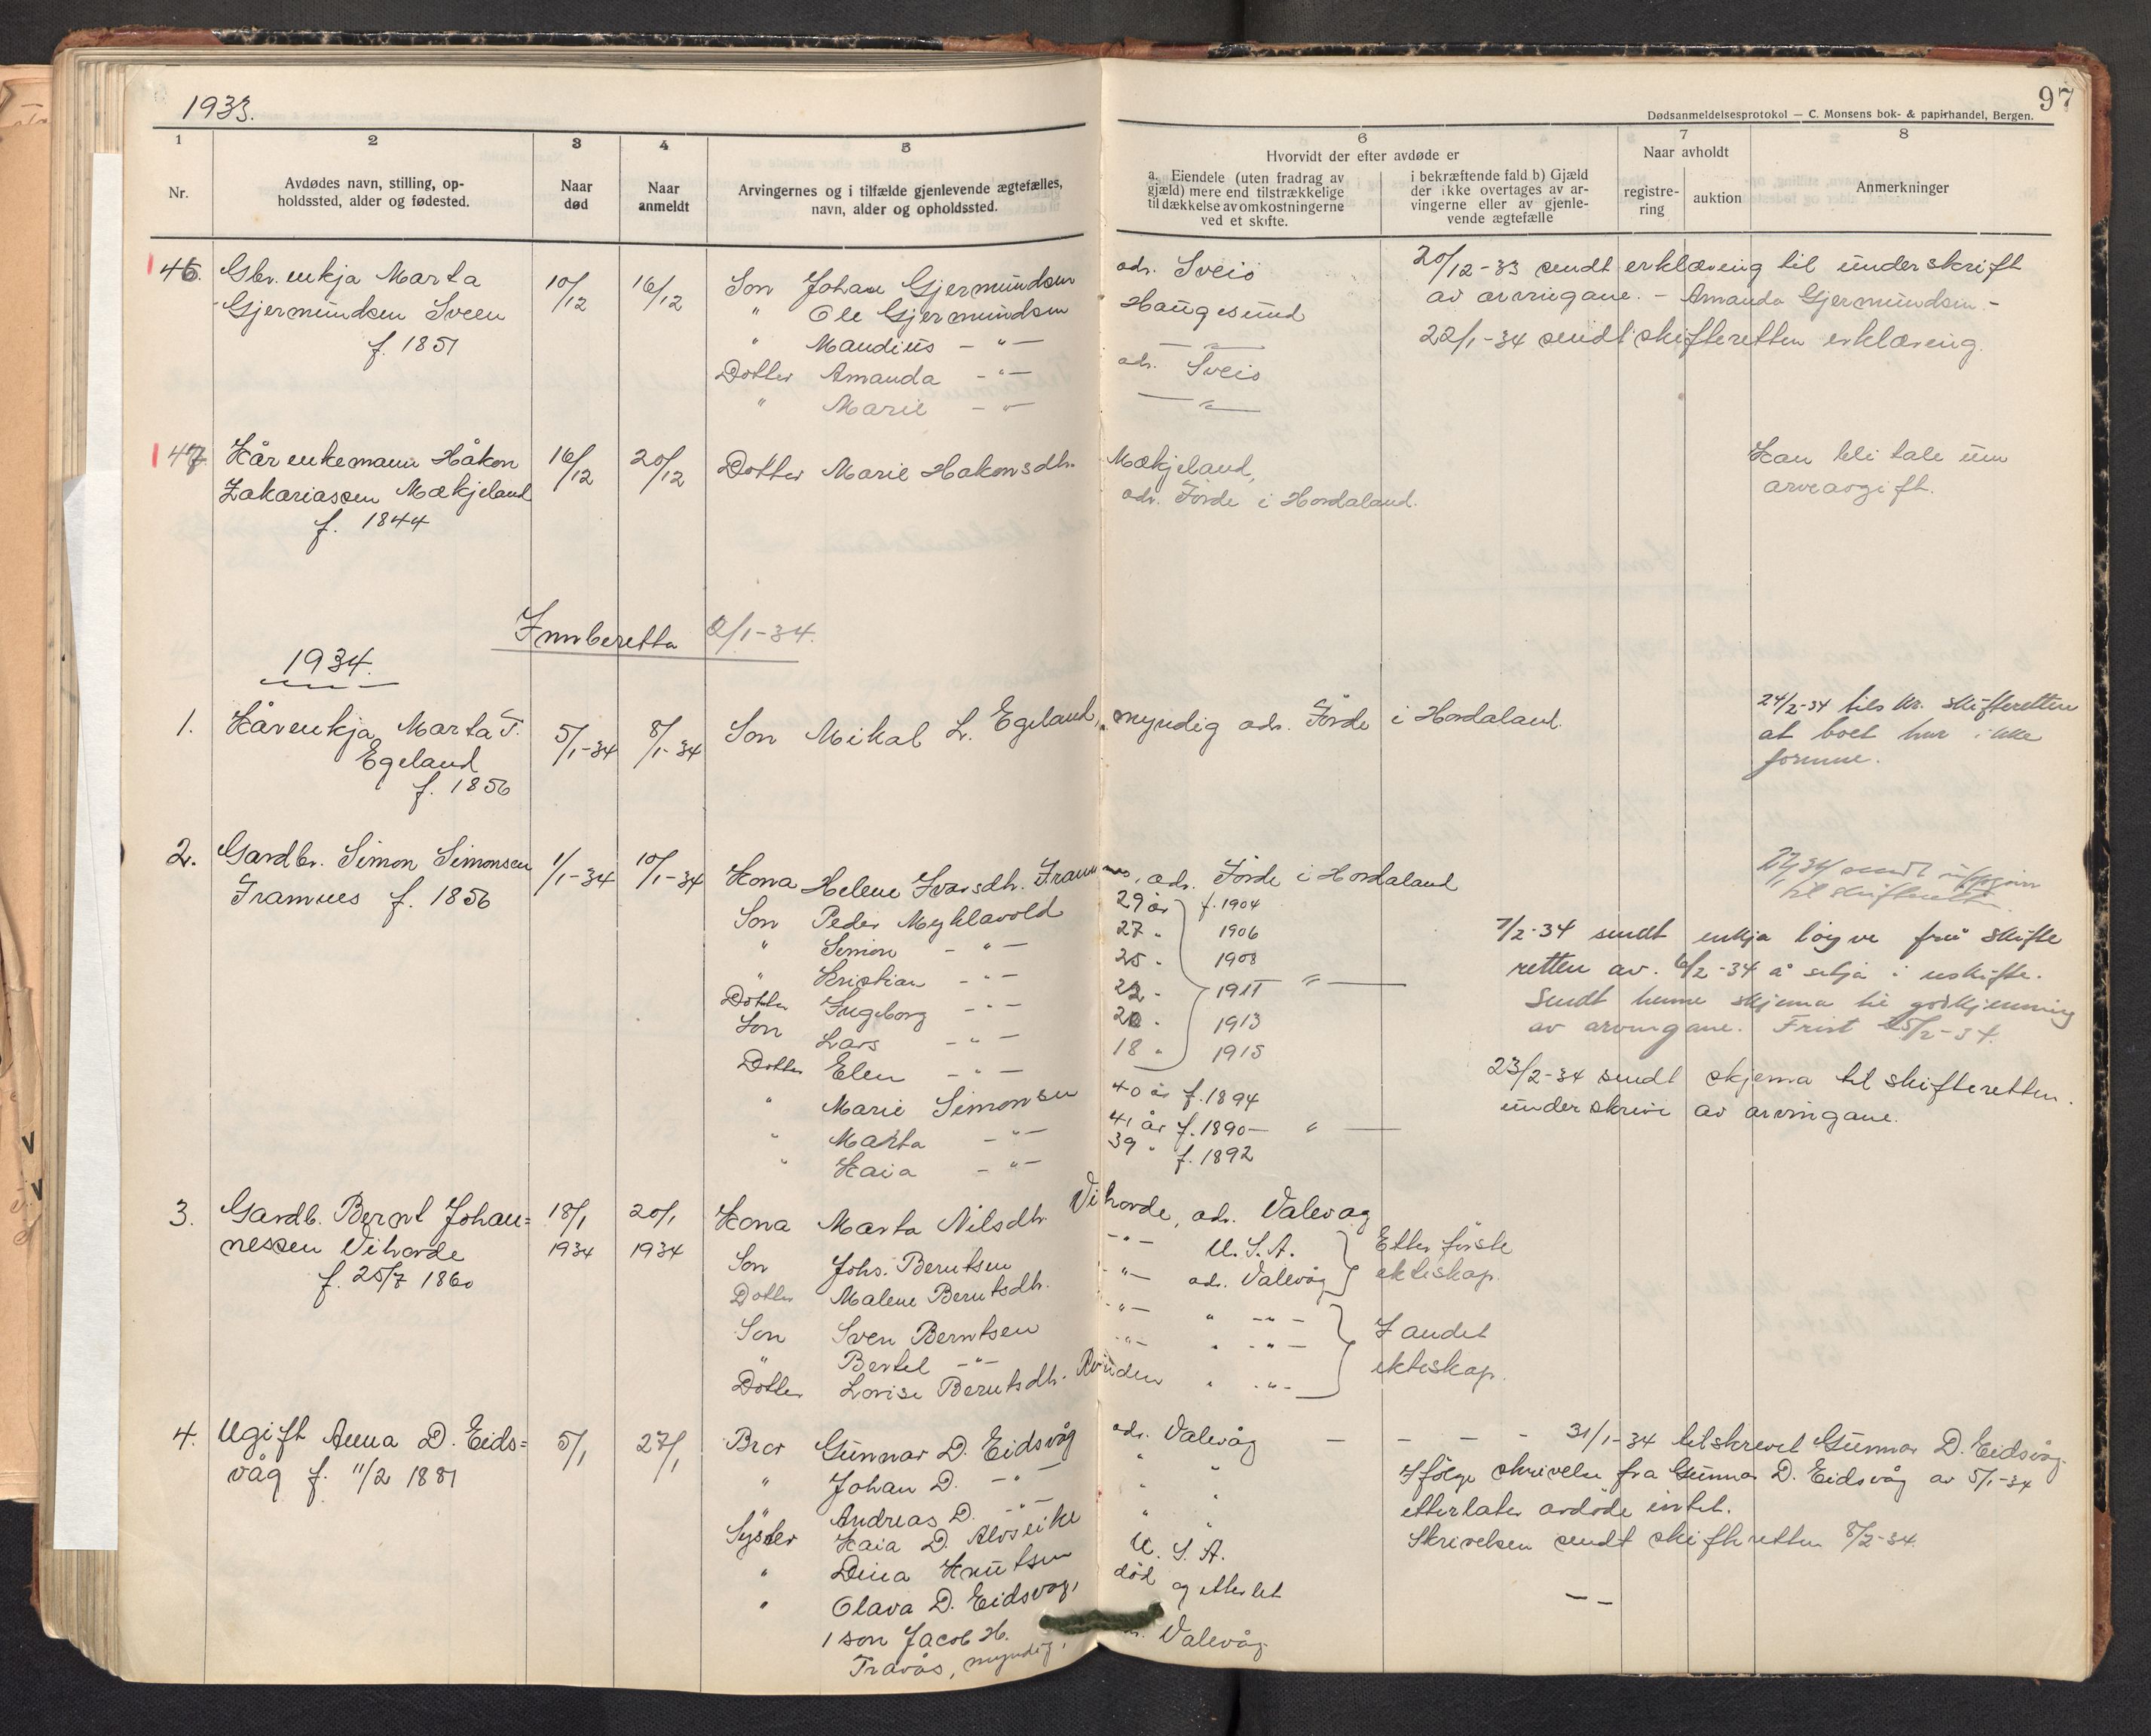 1933.
97
Dødsanmeldelsesprotokol — C. Monsens bok- & papirhandel, Bergen.
1 2 3 4 5 6 7 8
Nr.
Avdødes navn, stilling, op-
holdssted, alder og fødested.
Naar
død
Naar
anmeldt
Arvingernes og i tilfælde gjenlevende ægtefælles,
navn, alder og opholdssted.
Hvorvidt der efter avdøde er
a. Eiendele (uten fradrag av
gjæld) mere end tilstrækkelige
til dækkelse av omkostningerne
ved et skifte.
i bekræftende fald b) Gjæld
der ikke overtages av ar-
vingerne eller av gjenle-
vende ægtefælle
Naar avholdt
registre-
ring
auktion
Anmerkninger
46. Gbr. enkja Marta
Gjermundsen Sveen
f. 1851
10/12 16/12
Son Johan Gjermundsen adr. Sveio
" Ole Gjermundsen Haugesund
" Mandius - " - — " —
Dotter Amanda - " - adr. Sveio
" Marie - " - — " —
20/12-33 sendt erklæring til underskrift
av arvingane. - Amanda Gjermundsen -
22/1-34 sendt skifteretten erklæring.
47 Kår enkemann Håkon
Zakariassen Mækjeland
f. 1844
16/12 20/12
Dotter Marie Hakonsdtr. Mækjeland,
adr. Förde i Hordaland.
Kan bli tale um
arveavgift.
Innberetta 2/1-34.
1934.
1. Kårenkja Marta T.
Egeland
f. 1856
5/1-34 8/1-34
Son Mikal L. Egeland, myndig adr. Förde i Hordaland.
24/2-34 tilskr. skifteretten
at boet har ikke
formue.
2. Gardbr. Simon Simonsen
Framnes f. 1856
1/1-34 10/1-34
Kona Helene Ivarsdtr. Framnes, adr. Förde i Hordaland
Son Peder Myklavold 29 år f. 1904
" Simon - " - 27 " 1906
" Kristian - " - 25 " 1908
Dotter Ingeborg - " - 22 " 1911 " —
Son Lars - " - 20 " 1913
Dotter Elen - " - 18 " 1915
" Marie Simonsen 40 år f. 1894
" Marta - " - 41 år f. 1890 — " —
" Kaia - " - 39 " f. 1892
til skifterett
7/2-34 sendt enkja løyve frå skifte
retten av. 6/2-34 å sitja i uskifte.
Sendt henne skjema til godkjenning
av arvingane. Frist 25/2-34.
23/2-34 sendt skjema til skifteretten.
underskrive av arvingane.
3. Gardb. Bernt Johan=
nessen Vihovde
f. 25/7 1860
18/1 1934
20/1 1934
Kona Marta Nilsdtr. Vihovde, adr. Valevåg
Son Johs. Berntsen - " - U. S. A.
Dotter Malene Berntsdtr. - " - adr. Valevåg
Etter förste
ekteskap.
Son Sven Berntsen - " - " - " -
" Bertel - " - - " - " - " -
Dotter Lovise Berntsdtr. " - " -
I andet
ekteskap.
4. Ugift Anna D. Eids=
våg f. 11/2 1881
5/1 27/1
Bror Gunnar D. Eidsvåg adr. Valevåg
" Johan D. - " - " "
" Andreas D. - " - " "
Syster Kaia D. Alvseike " "
" Dina Knutsen U. S. A.
" Olava D. Eidsvåg, död og etterlet
1 son Jacob H.
Travås, myndig, Valevåg.
- - - - 31/1-34 tilskrevet Gunnar D. Eidsvåg.
Ifölge skrivelse fra Gunnar D. Eidsvåg av 5/1-34
etterlater avdöde intet.
Skrivelsen sendt skifteretten 8/2-34.
— —